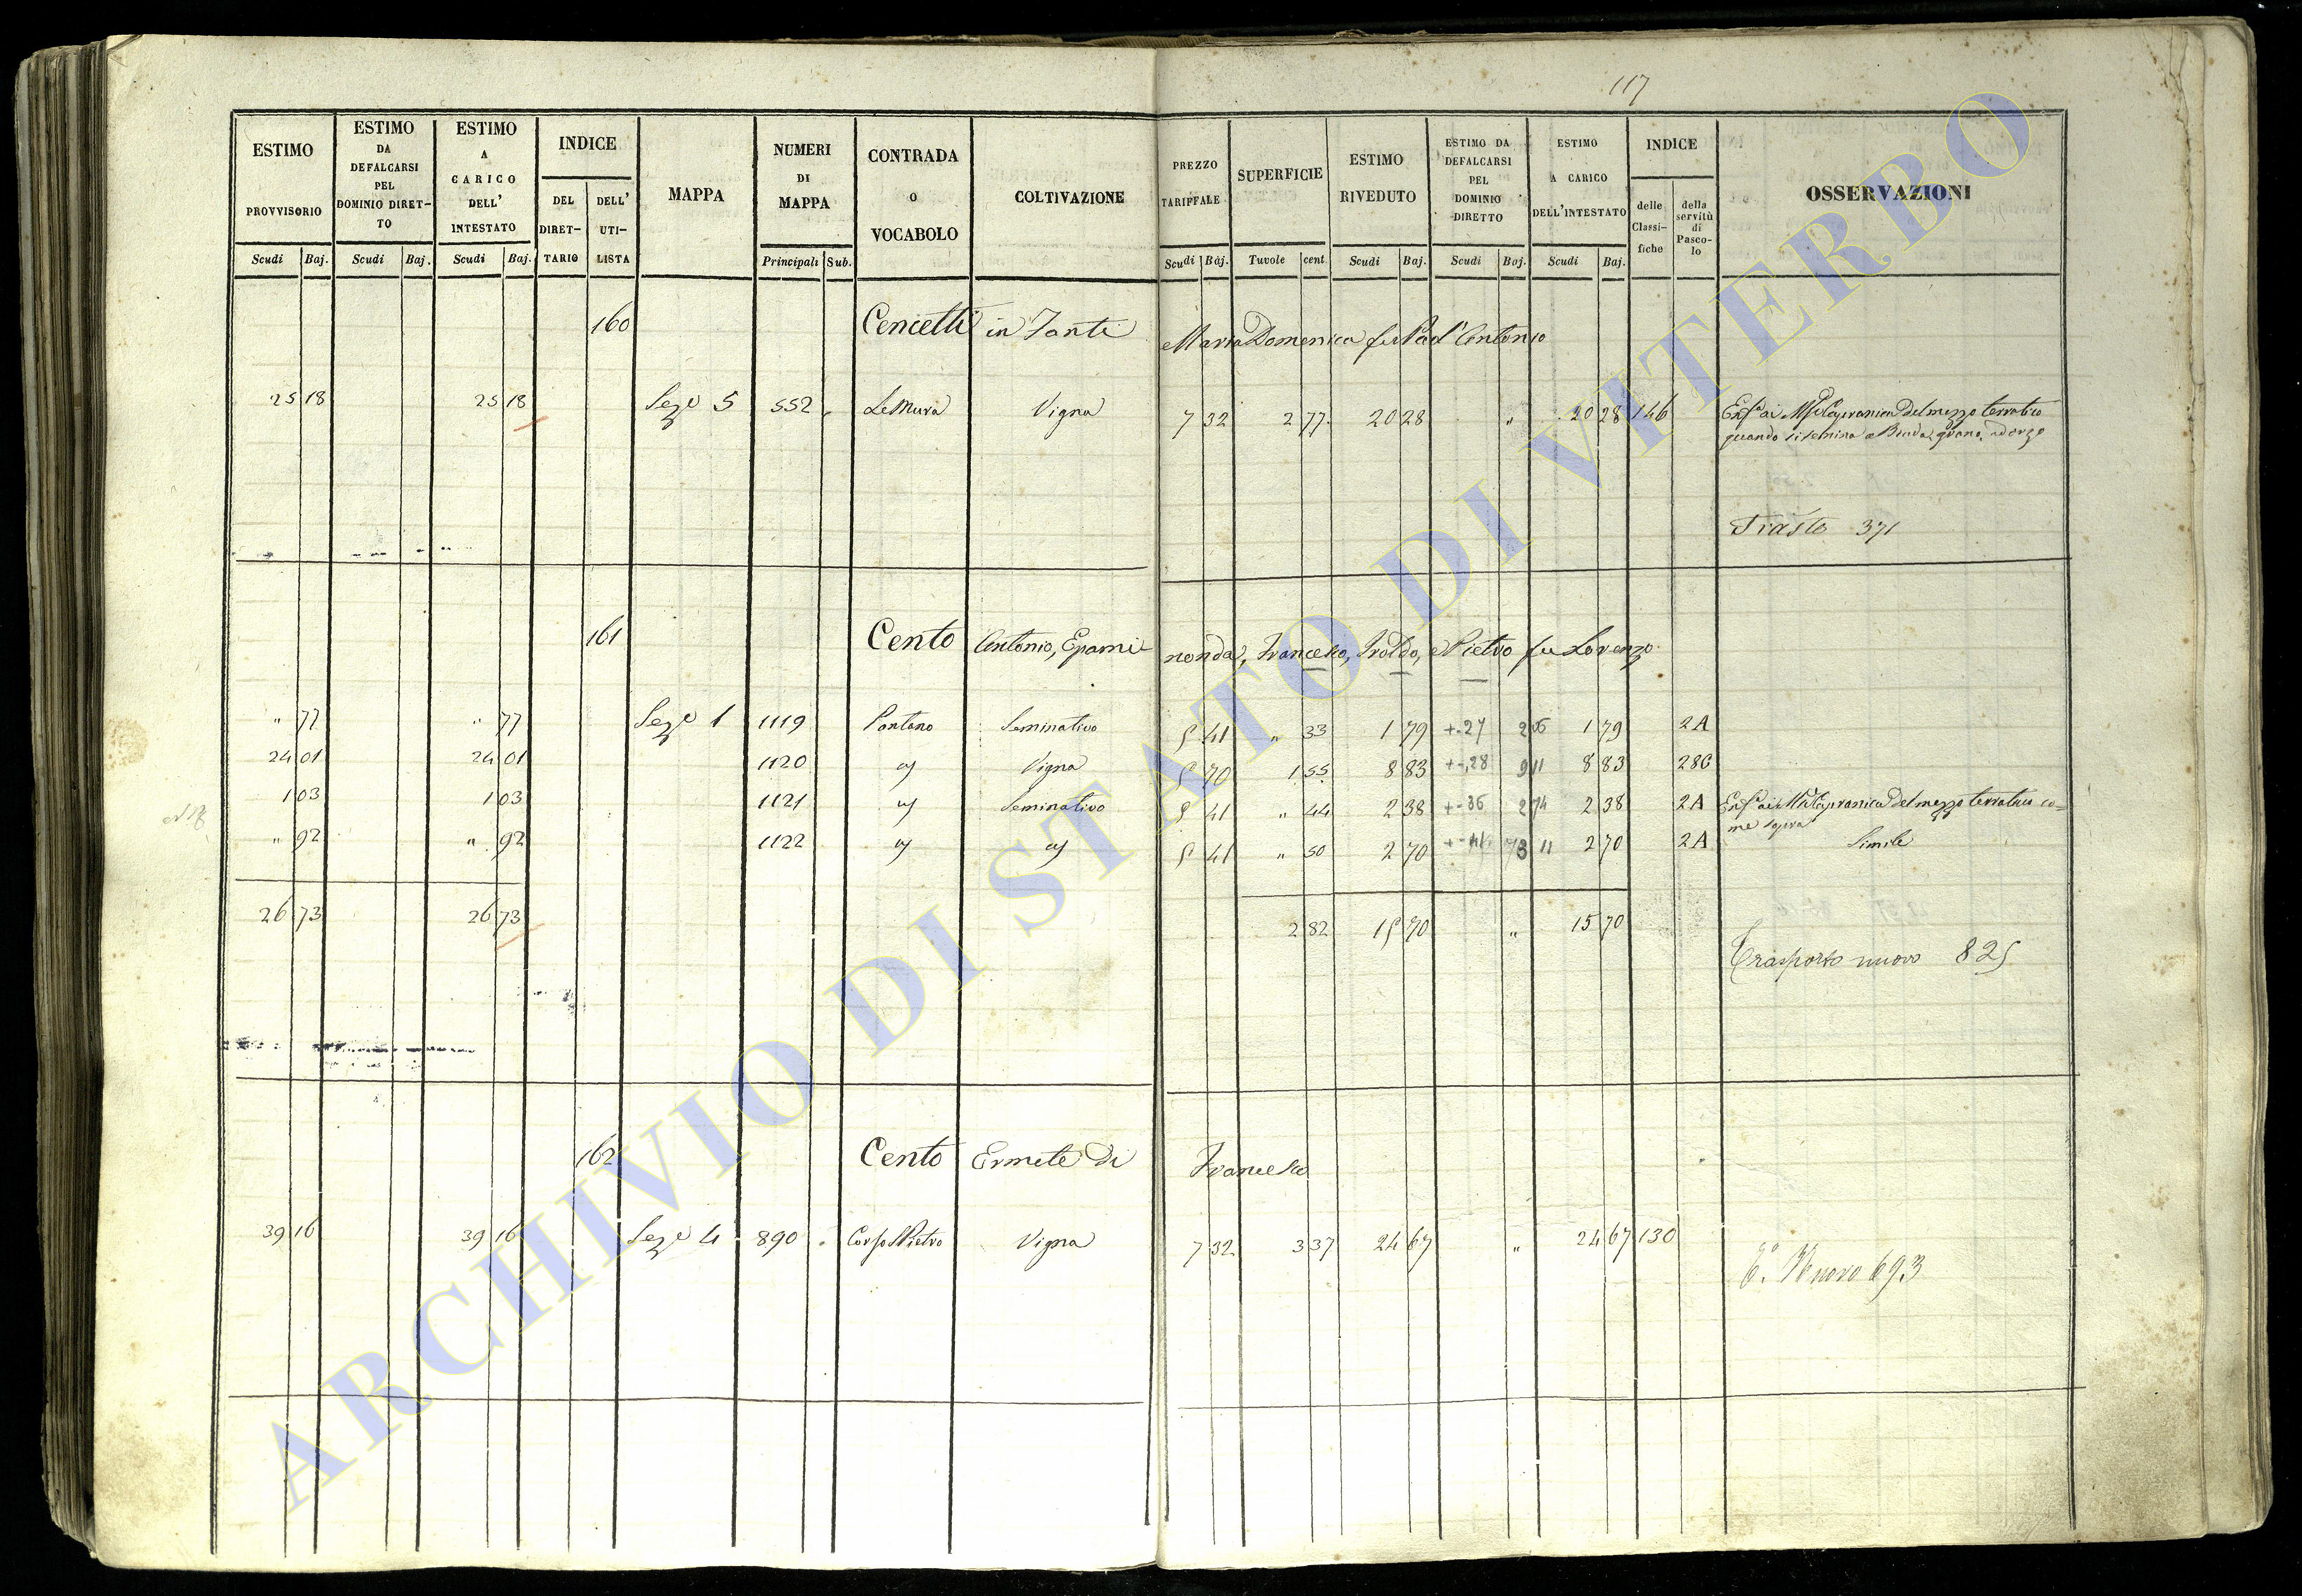 117
ESTIMO PROVVISORIO Scudi Baj.
ESTIMO DA DEFALCARSI PEL DOMINIO DIRET-TO Scudi Baj.
ESTIMO A CARICO DELL' INTESTATO Scudi Baj.
INDICE DEL DIRET-TARIO DELL' UTI-LISTA
MAPPA
NUMERI DI MAPPA Principali Sub.
CONTRADA O VOCABOLO
COLTIVAZIONE
PREZZO TARIFFALE Scudi Baj.
SUPERFICIE Tavole cent
ESTIMO RIVEDUTO Scudi Baj.
ESTIMO DA DEFALCARSI PEL DOMINIO DIRETTO Scudi Baj.
ESTIMO A CARICO DELL'INTESTATO Scudi Baj.
INDICE delle Classi-fiche della servitù di Pasco-lo
OSSERVAZIONI
160 Cencetti in Zanti Maria Domenica fu Antonio
25 18 25 18 Seze 5 552 Le Mura Vigna 7 32 2 77 20 28 " 20 28 146 del mezzo terratico
quando si semina a Biada, grano, ad orzo
Trasto 371
161 Cento Antonio, Epami- nonda, Francesco, Isoldo, e Pietro fu Lorenzo
" 77 " 77 Seze 1 1119 Pantano Seminativo 5 41 " 33 1 79 +-27 2 06 1 79 2A
24 01 24 01 1120 " Vigna 5 70 1 55 8 83 +-28 9 11 8 83 28C
1 03 1 03 1121 " Seminativo 5 41 " 44 2 38 +-36 2 74 2 38 2A del mezzo terratico co-
me sopra
" 92 " 92 1122 " " 5 41 " 50 2 70 +-41 3 11 2 70 2A Simile
26 73 26 73 2 82 15 70 " 15 70
Trasporto nuovo 825
162 Cento Ermete di Francesco
39 16 39 16 Seze 4 890 Corso S Pietro Vigna 7 32 3 37 24 67 " 24 67 130
T. Nuovo 693
ARCHIVIO DI STATO DI VITERBO